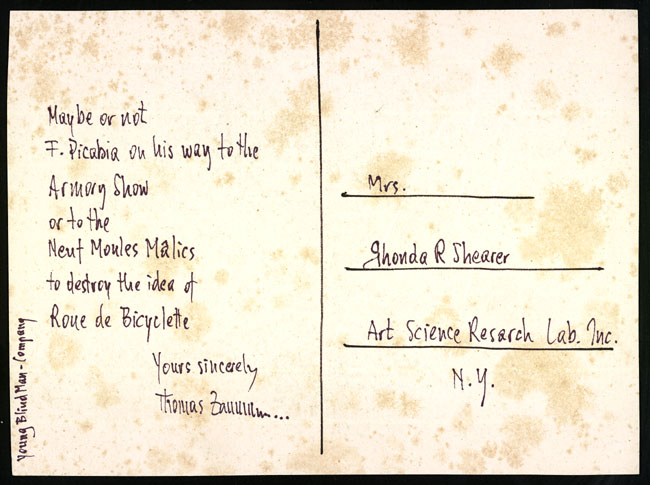 Maybe or not
F. Picabia on his way to the
Armory Show
or to the
Neuf Moules Mâlics
to destroy the idea of
Roue de Bicyclette
Yours sincerely
Thomas
Young Blind Man - Company
Mrs.
Rhonda R Shearer
Art Science Resarch Lab. Inc.
N.Y.